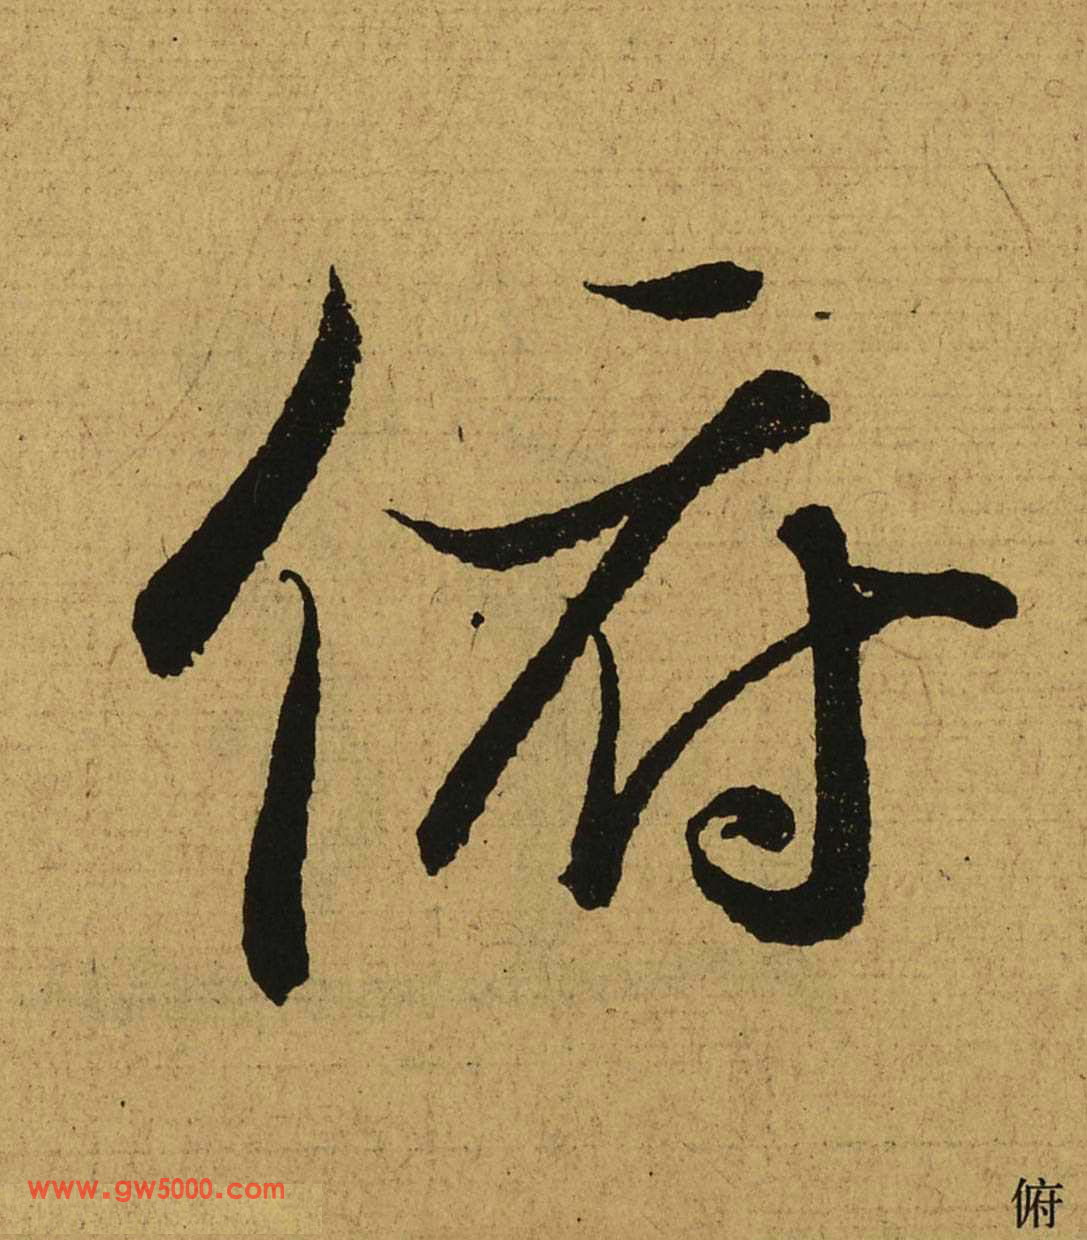 俯
www.gw5000.com
俯